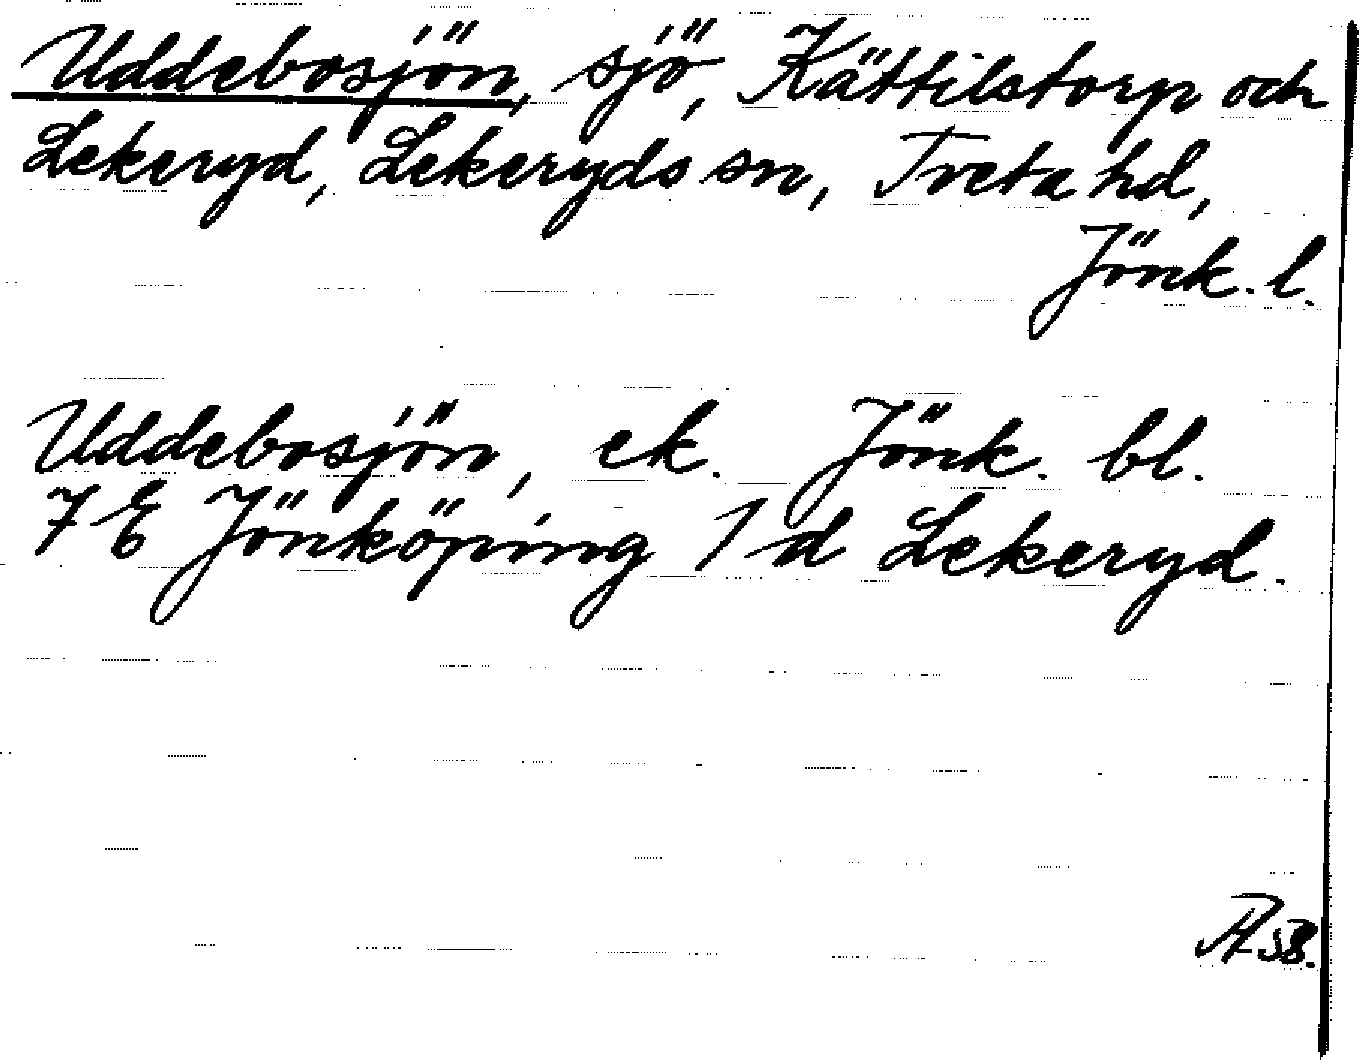 Uddebosjön, sjö, Kättilstorp och
Lekeryd, Lekeryds sn, Tveta hd,
Jönk. l.
Uddebosjön, ek. Jönk. bl.
7 E Jönköping 1 d Lekeryd.